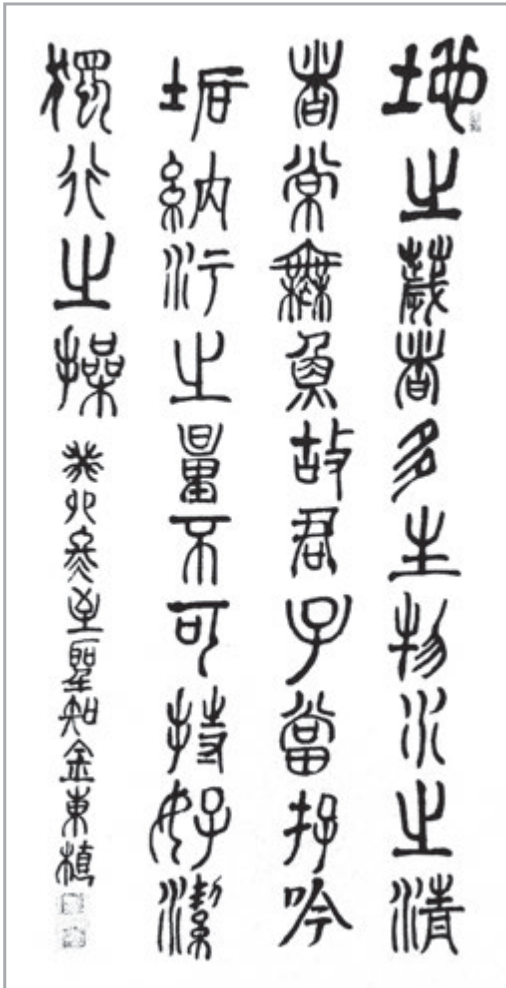 地之薉者多生物水之清
者常無魚故君子當存含
垢納汙之量不可持好潔
獨行之操 癸卯冬至聖知金東植